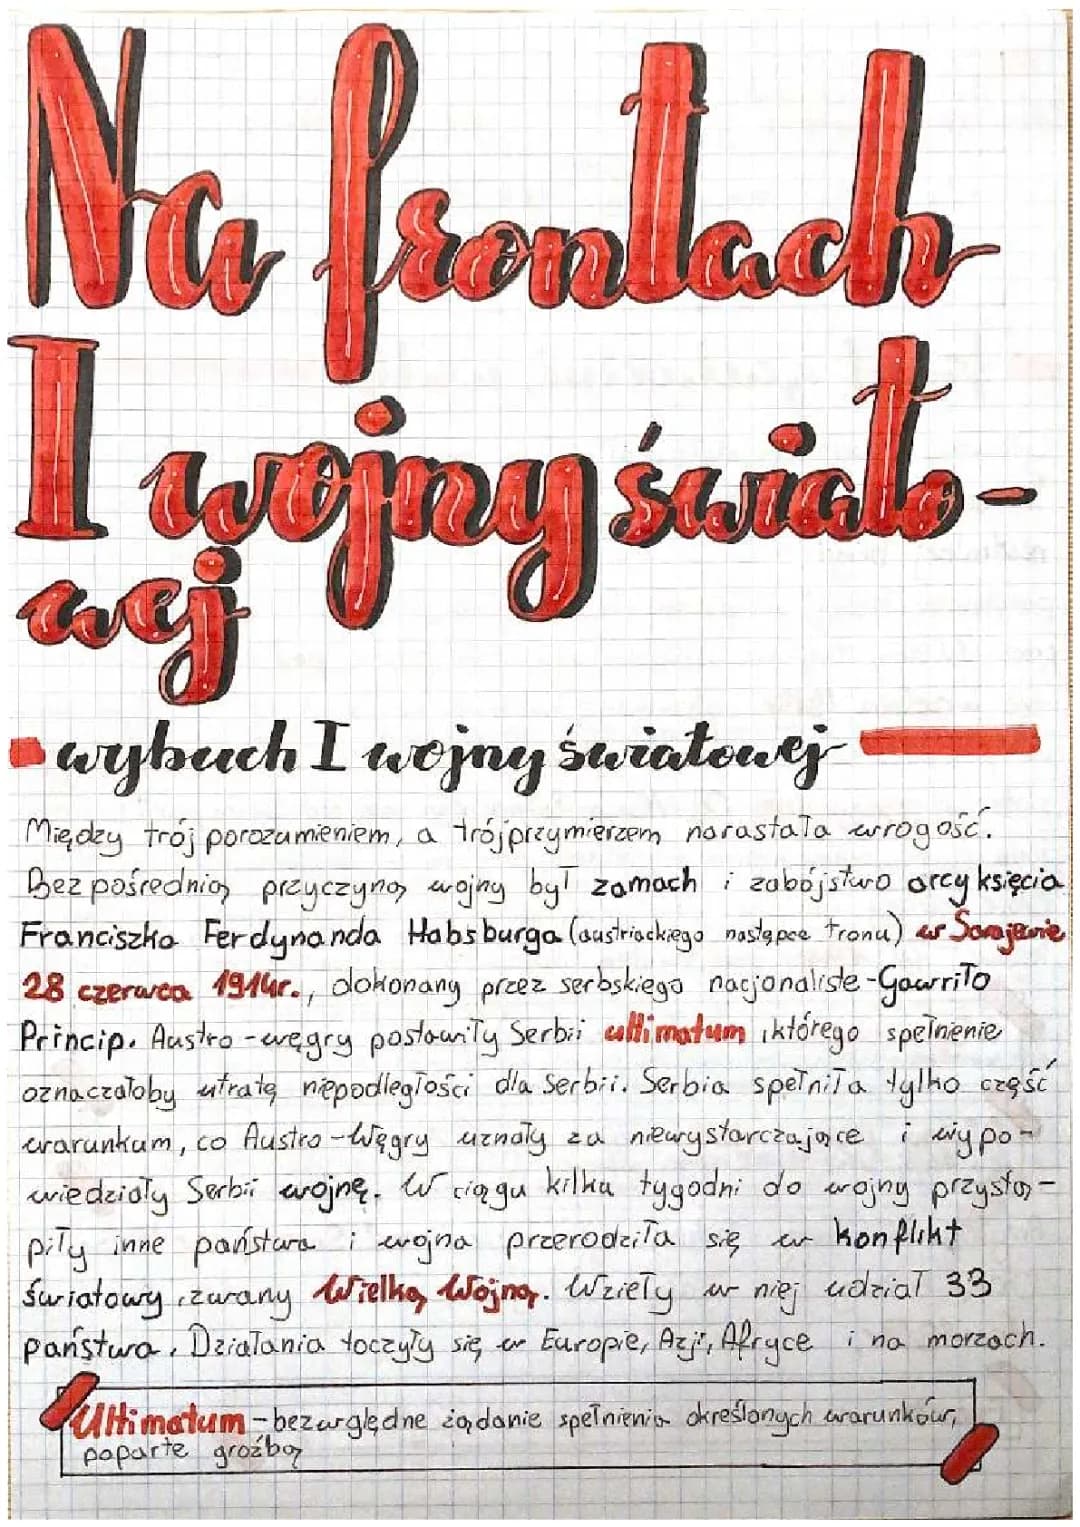 Na frontach
I wojny świato-
wej
wybuch I wojny światowej
Między trój porozumieniem, a trójprzymierzem narastała wrogość.
Bezpośrednią przyczyną wojny był zamach i zabójstwo arcyksięcia
Franciszka Ferdynanda Habsburga (austriackiego następce tronu) w Sarajewie
28 czerwca 1914r., dokonany przez serbskiego nacjonaliste - Gawriło
Princip. Austro-węgry postawiły Serbii ultimatum, którego spełnienie
oznaczałoby utratę niepodległości dla Serbii. Serbia spełniła tylko część
warunkum, co Austro-Węgry uznały za niewystarczające i wypo-
wiedziały Serbii wojnę. W ciągu kilku tygodni do wojny przystą-
piły inne państwa i wojna przerodziła się w konflikt
światowy, zwany Wielką Wojną. Wzieły w niej udział 33
państwa. Działania toczyły się w Europie, Azji, Afryce i na morzach.
Ultimatum - bezwględne żądanie spełnienia określonych warunków,
poparte groźbą